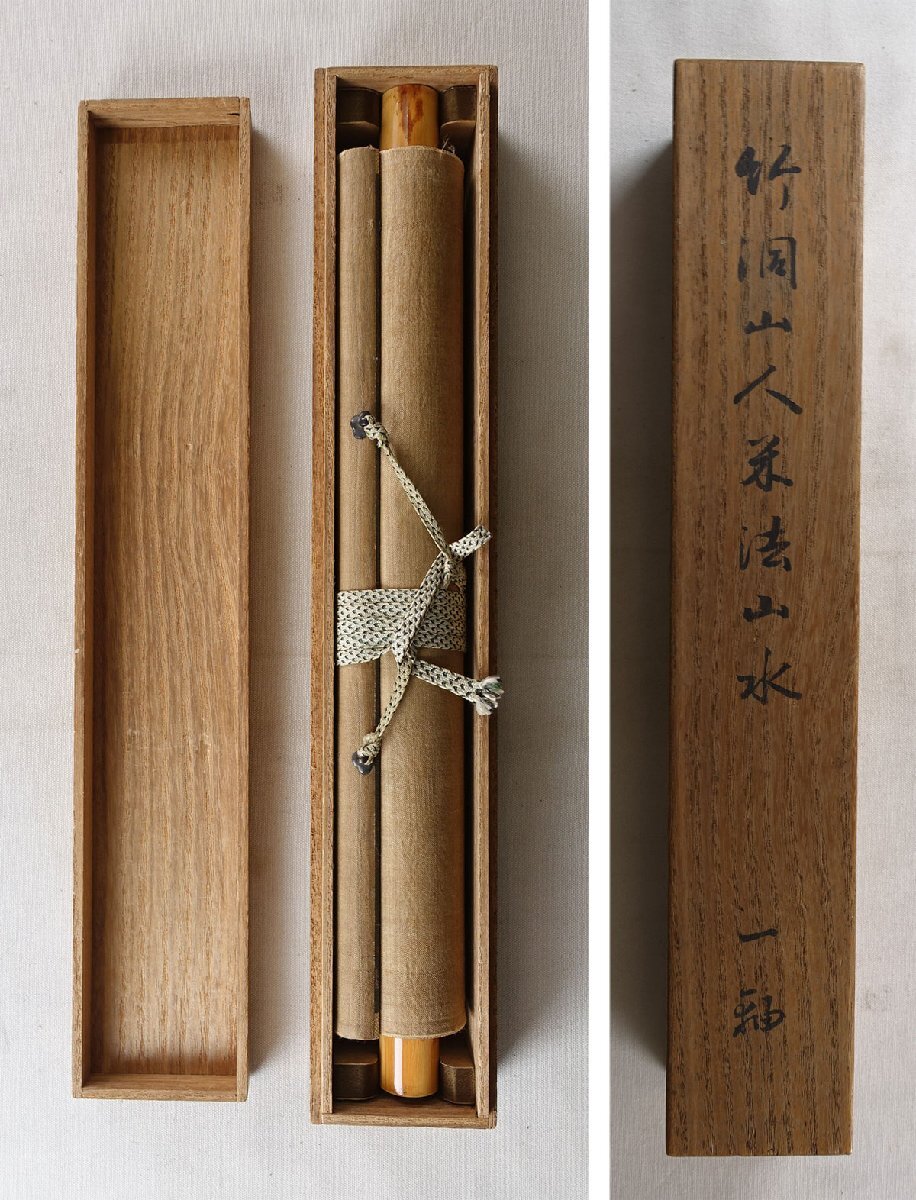 竹洞山人米法山水　一幅